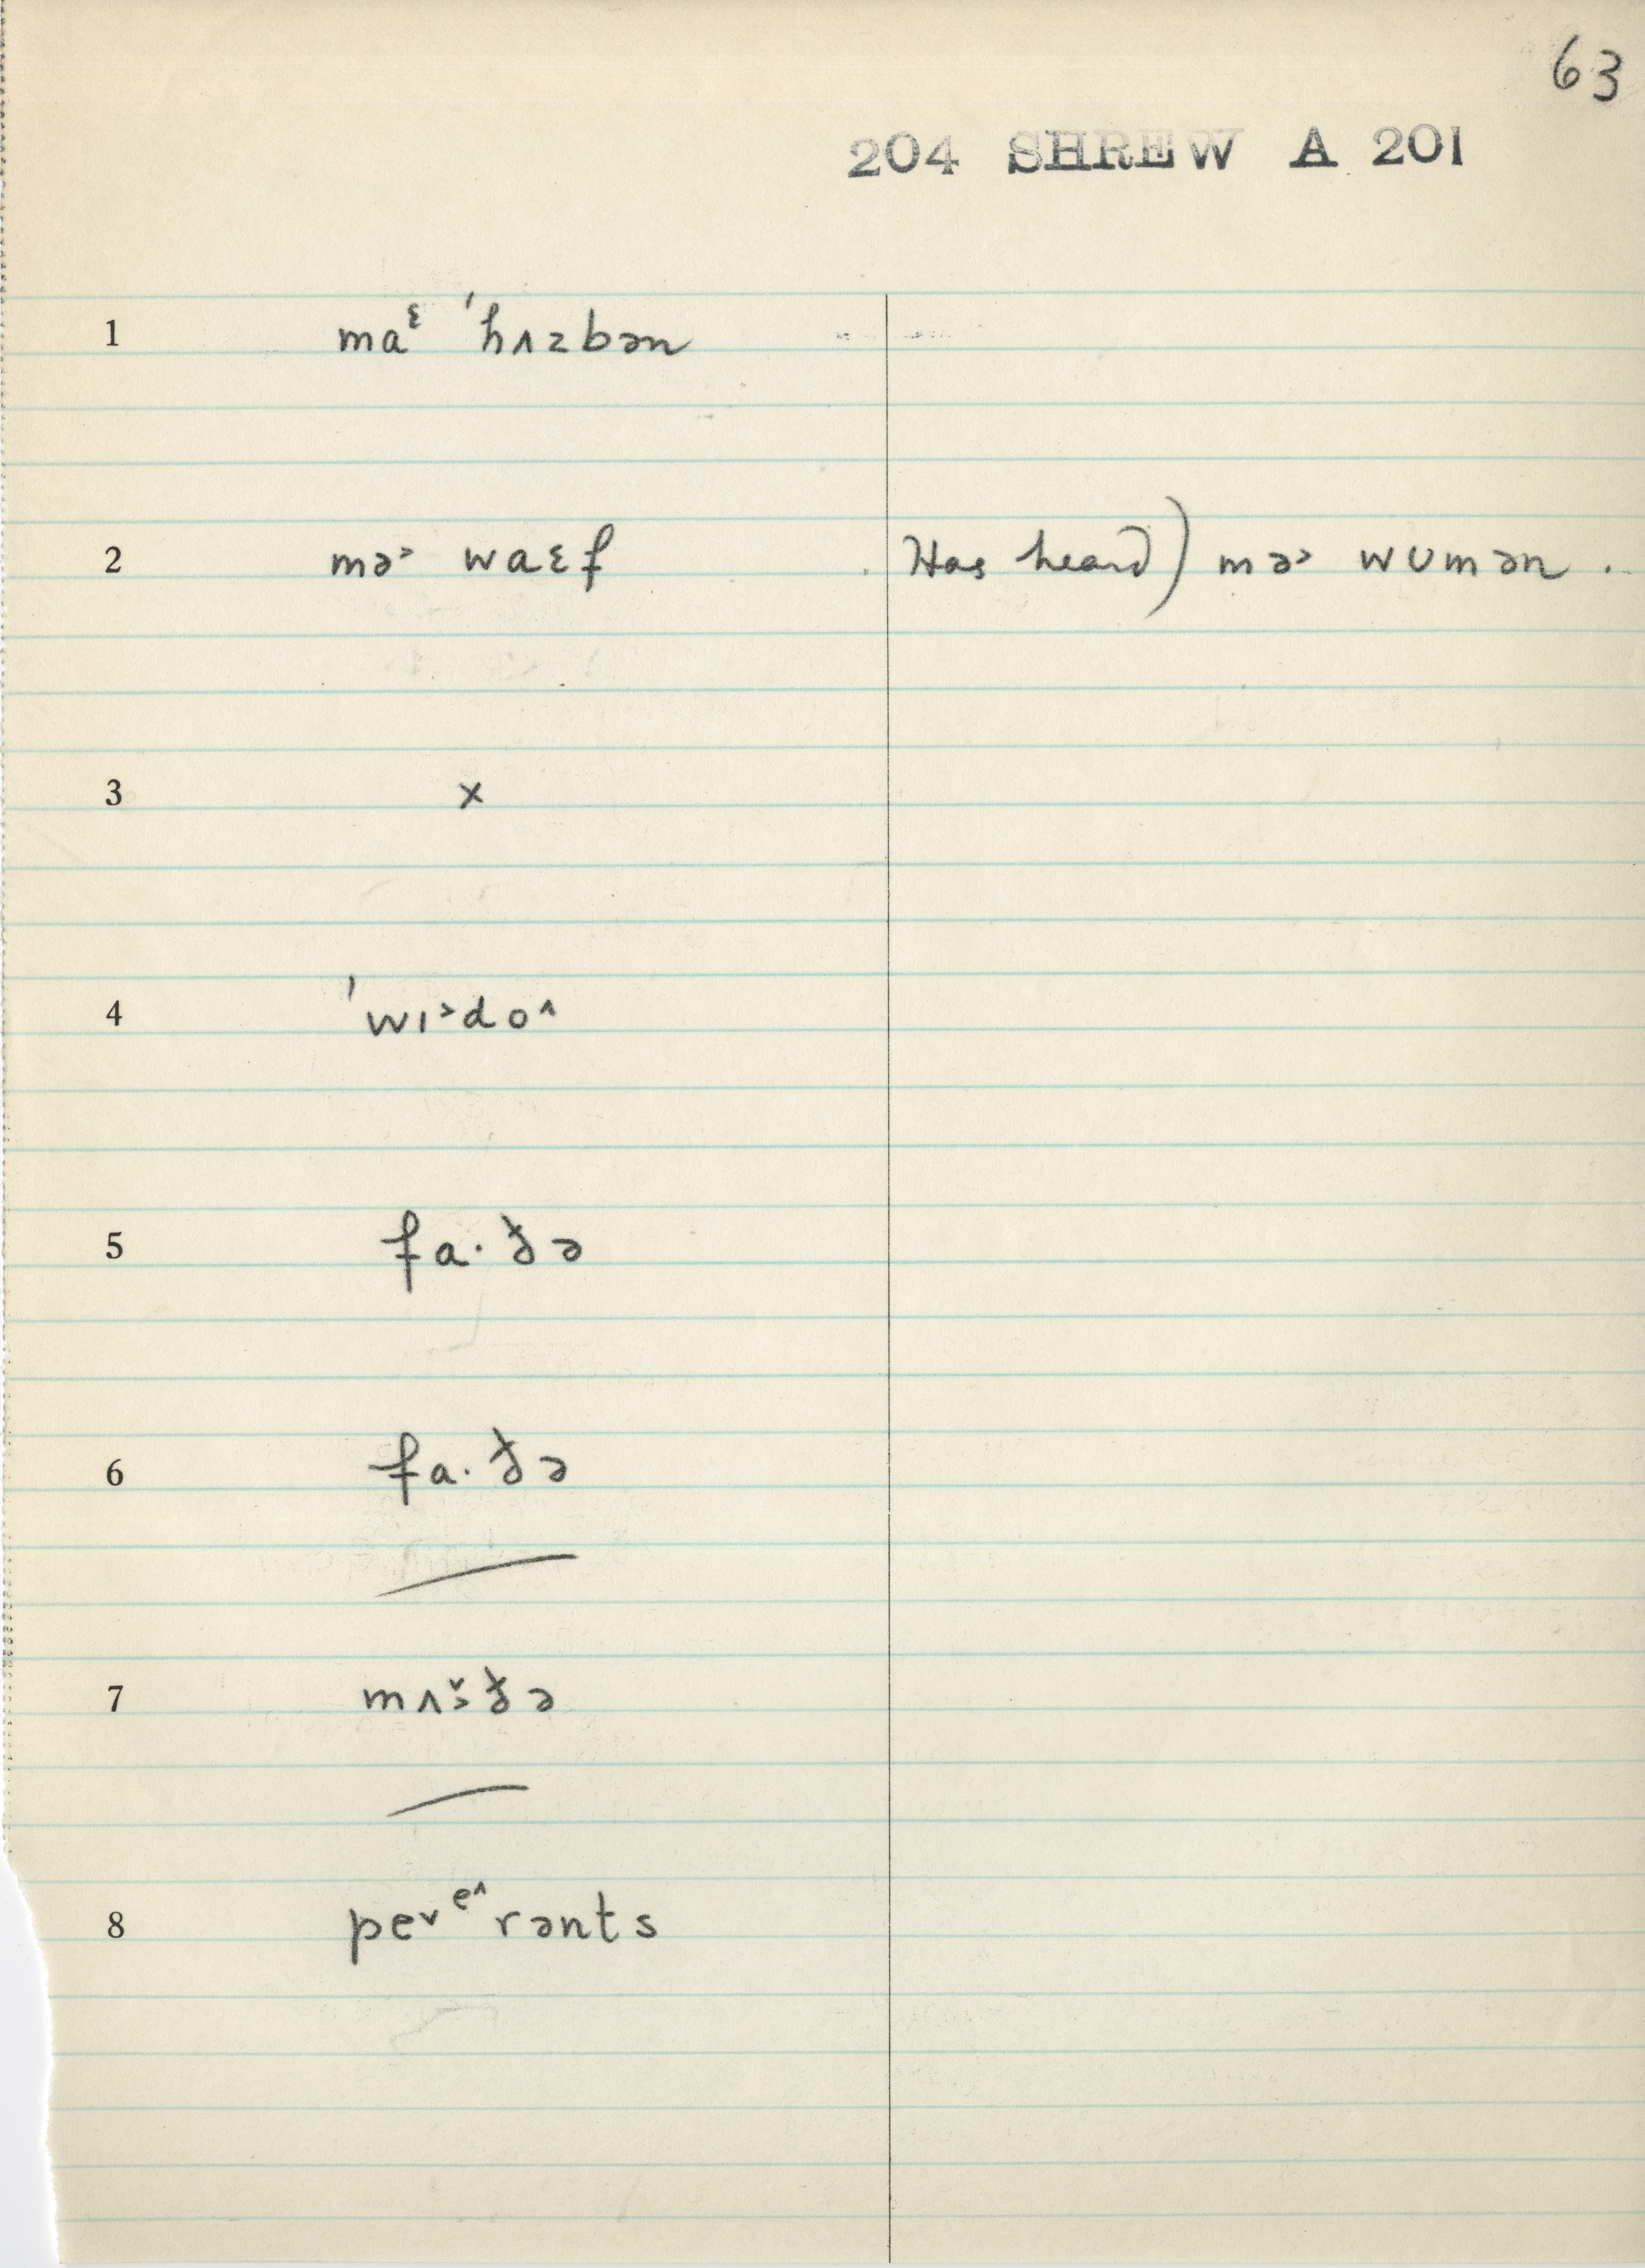 63
204 SHREW A 201
1 maᵋ ˈhʌzbən
2 mə˃ waɛf Has heard) mə˃ wʊmən .
3 x
4 ˈwɪ˃do^
5 fa·ðə
6 fa·ðə
7 mʌ˅˃ðə
8 pe˅ᵉ^rənts